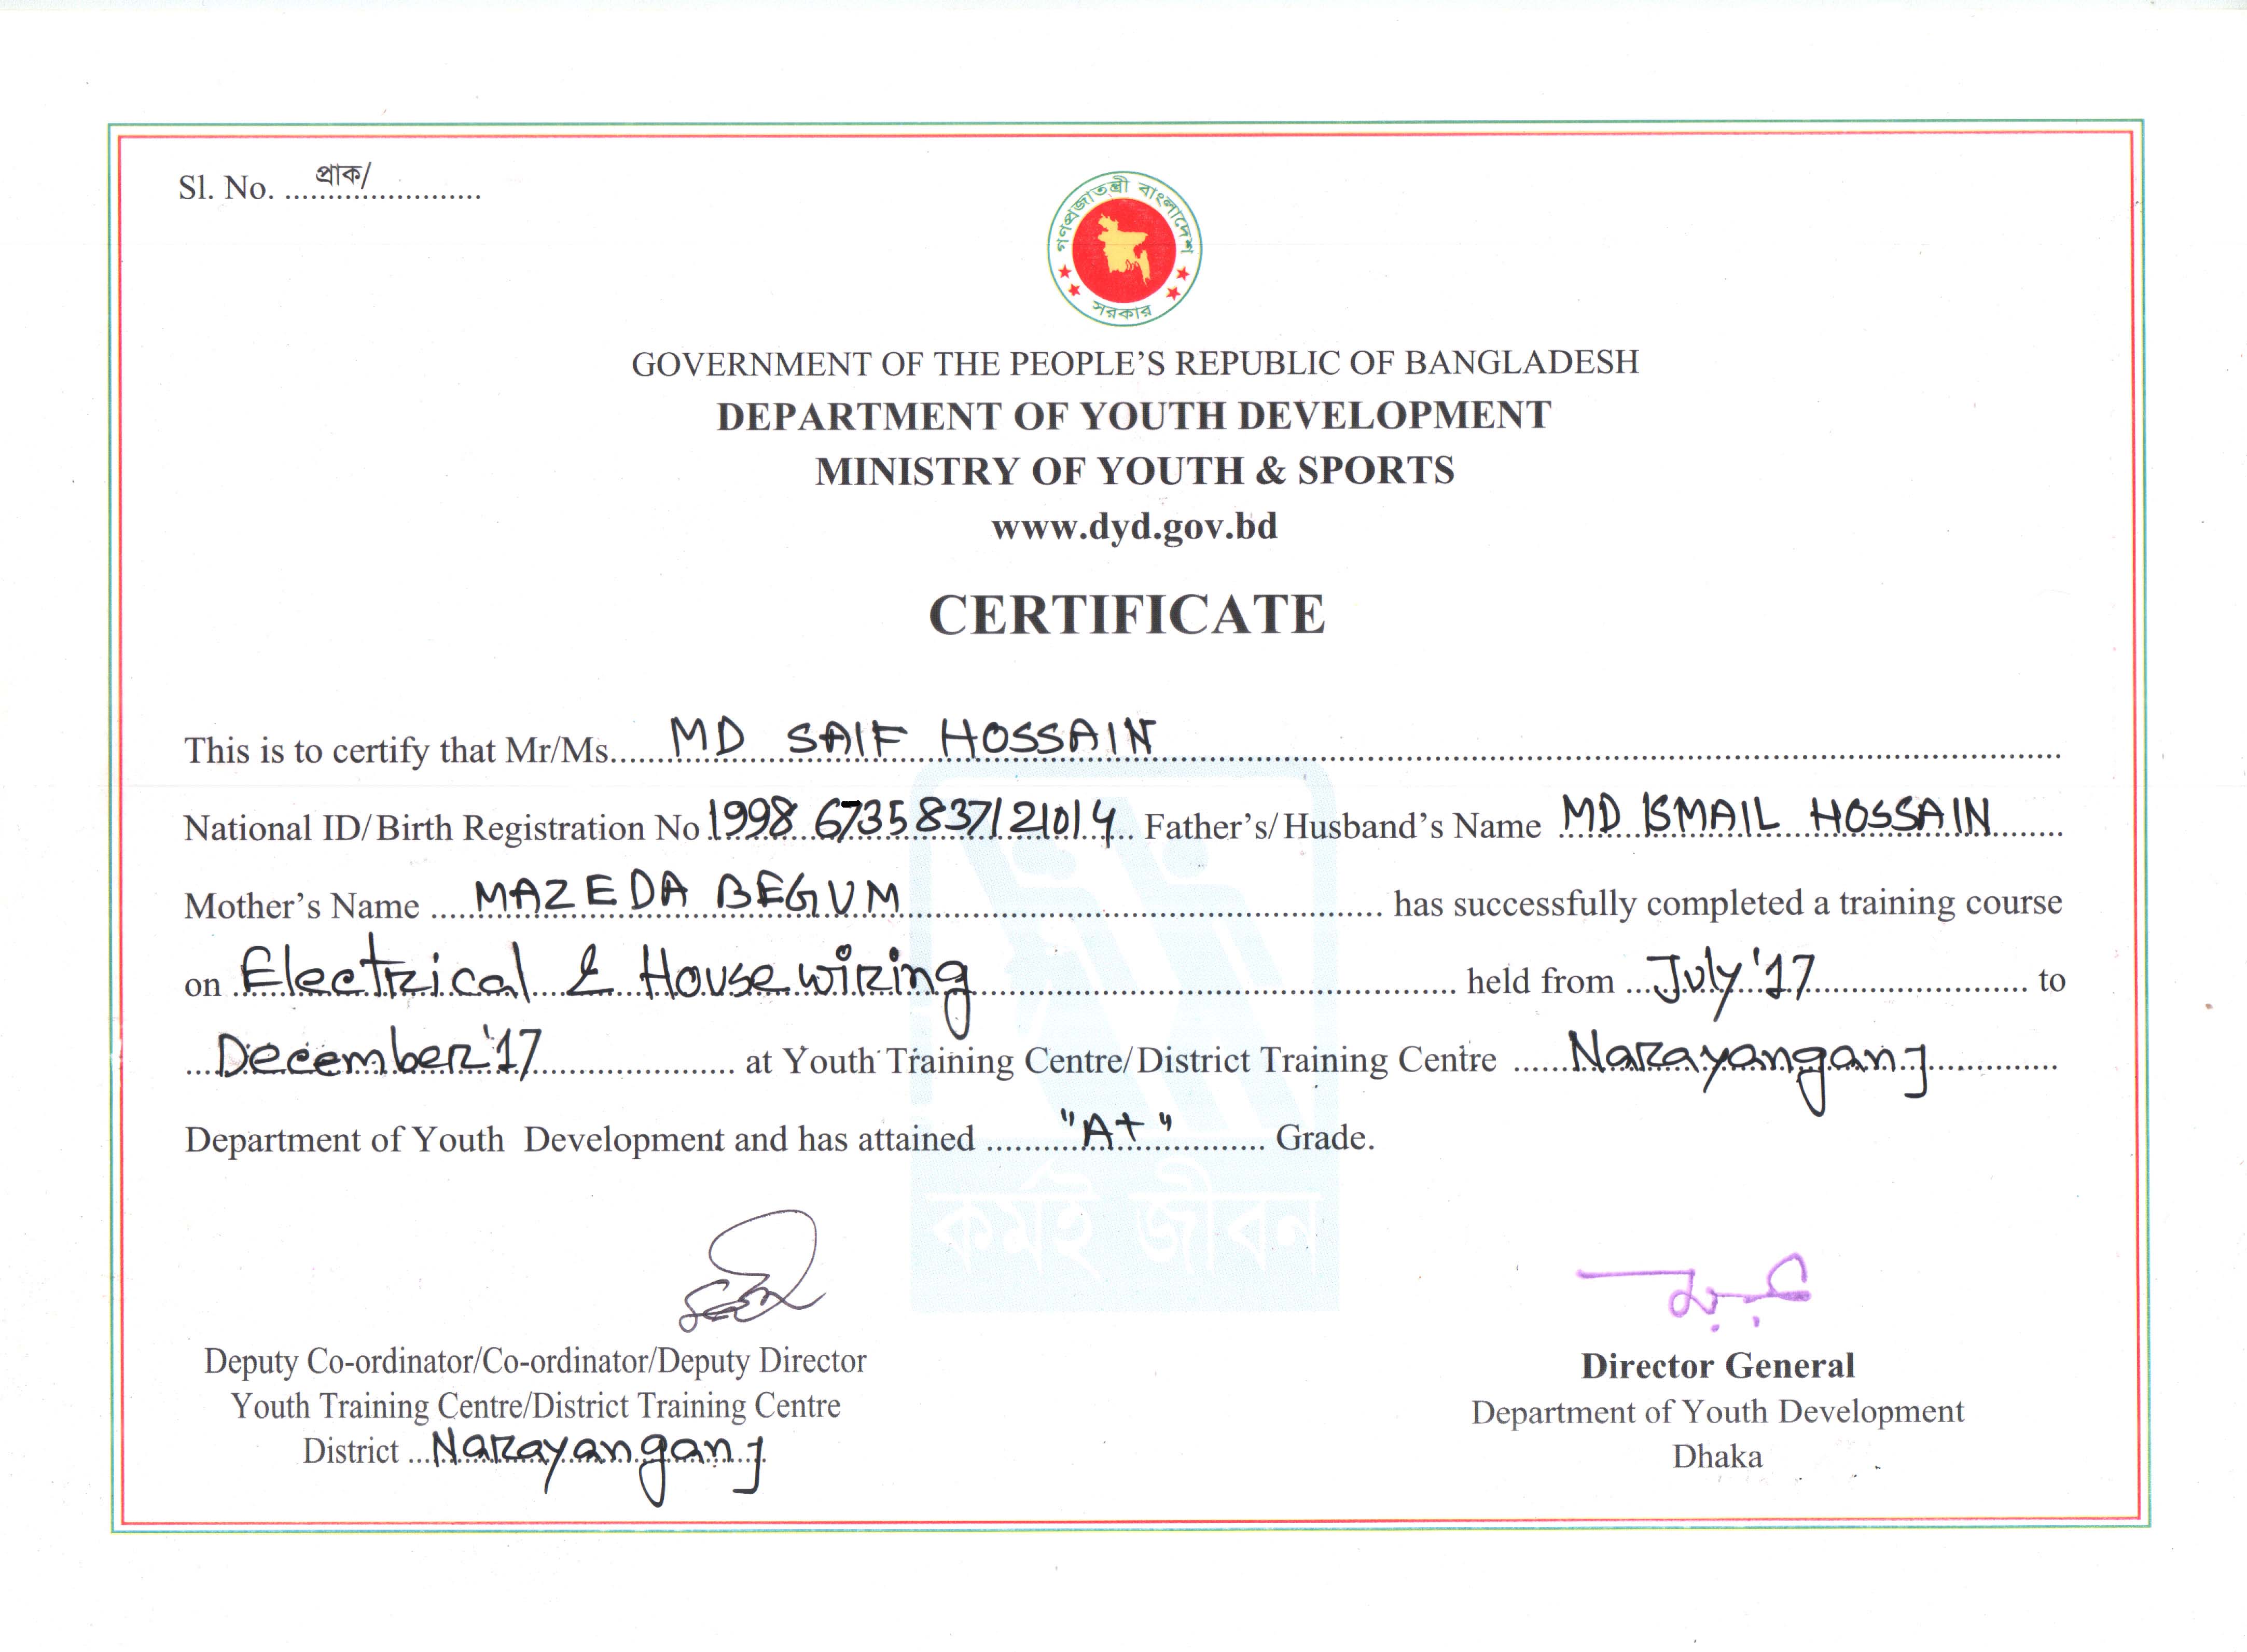 Sl. No. ....প্রাক/..................
গণপ্রজাতন্ত্রী বাংলাদেশ
সরকার
GOVERNMENT OF THE PEOPLE'S REPUBLIC OF BANGLADESH
DEPARTMENT OF YOUTH DEVELOPMENT
MINISTRY OF YOUTH & SPORTS
www.dyd.gov.bd
CERTIFICATE
This is to certify that Mr/Ms. MD SAIF HOSSAIN
National ID/Birth Registration No Father's/Husband's Name MD ISMAIL HOSSAIN
Mother's Name MAZEDA BEGUM has successfully completed a training course
on Electrical & House wiring held from July '17 to
December '17 at Youth Training Centre/District Training Centre Narayanganj
Department of Youth Development and has attained "A+" Grade.
কর্মই জীবন
Deputy Co-ordinator/Co-ordinator/Deputy Director
Youth Training Centre/District Training Centre
District Narayanganj
Director General
Department of Youth Development
Dhaka